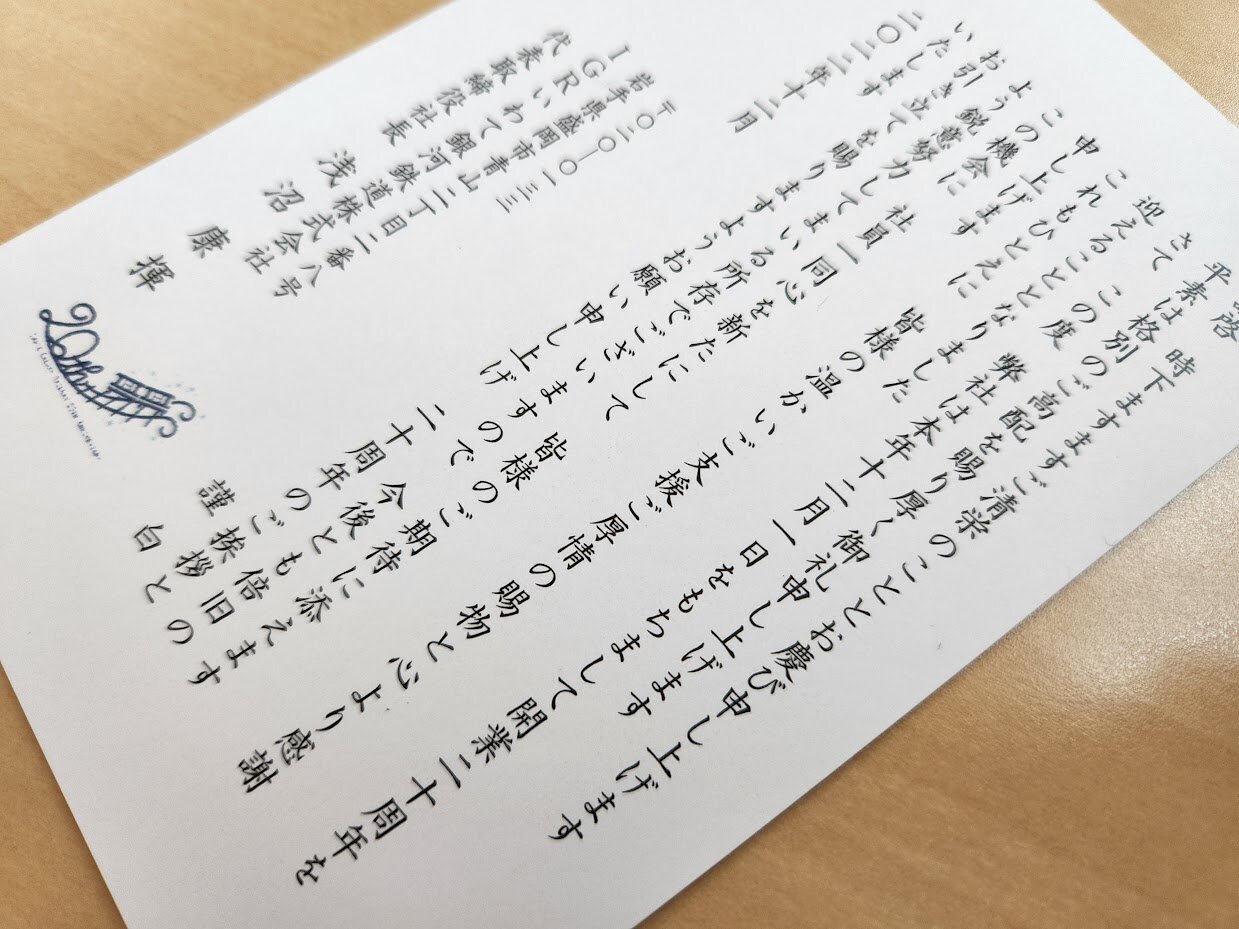 啓 時下ますますご清栄のこととお慶び申し上げます
平素は格別のご高配を賜り厚く御礼申し上げます
さて この度 弊社は本年十二月一日をもちまして開業二十周年を
迎えることとなりました
これもひとえに 皆様の温かいご支援ご厚情の賜物と心より感謝
申し上げます
この機会に 社員一同心を新たにして 皆様のご期待に添えます
よう鋭意努力してまいる所存でございますので 今後とも倍旧の
お引き立てを賜りますようお願い申し上げ 二十周年のご挨拶と
いたします 謹白
二〇二二年十二月
〒〇二〇―〇一三三
岩手県盛岡市青山二丁目二番八号
IGRいわて銀河鉄道株式会社
代表取締役社長 浅沼 康揮
20th